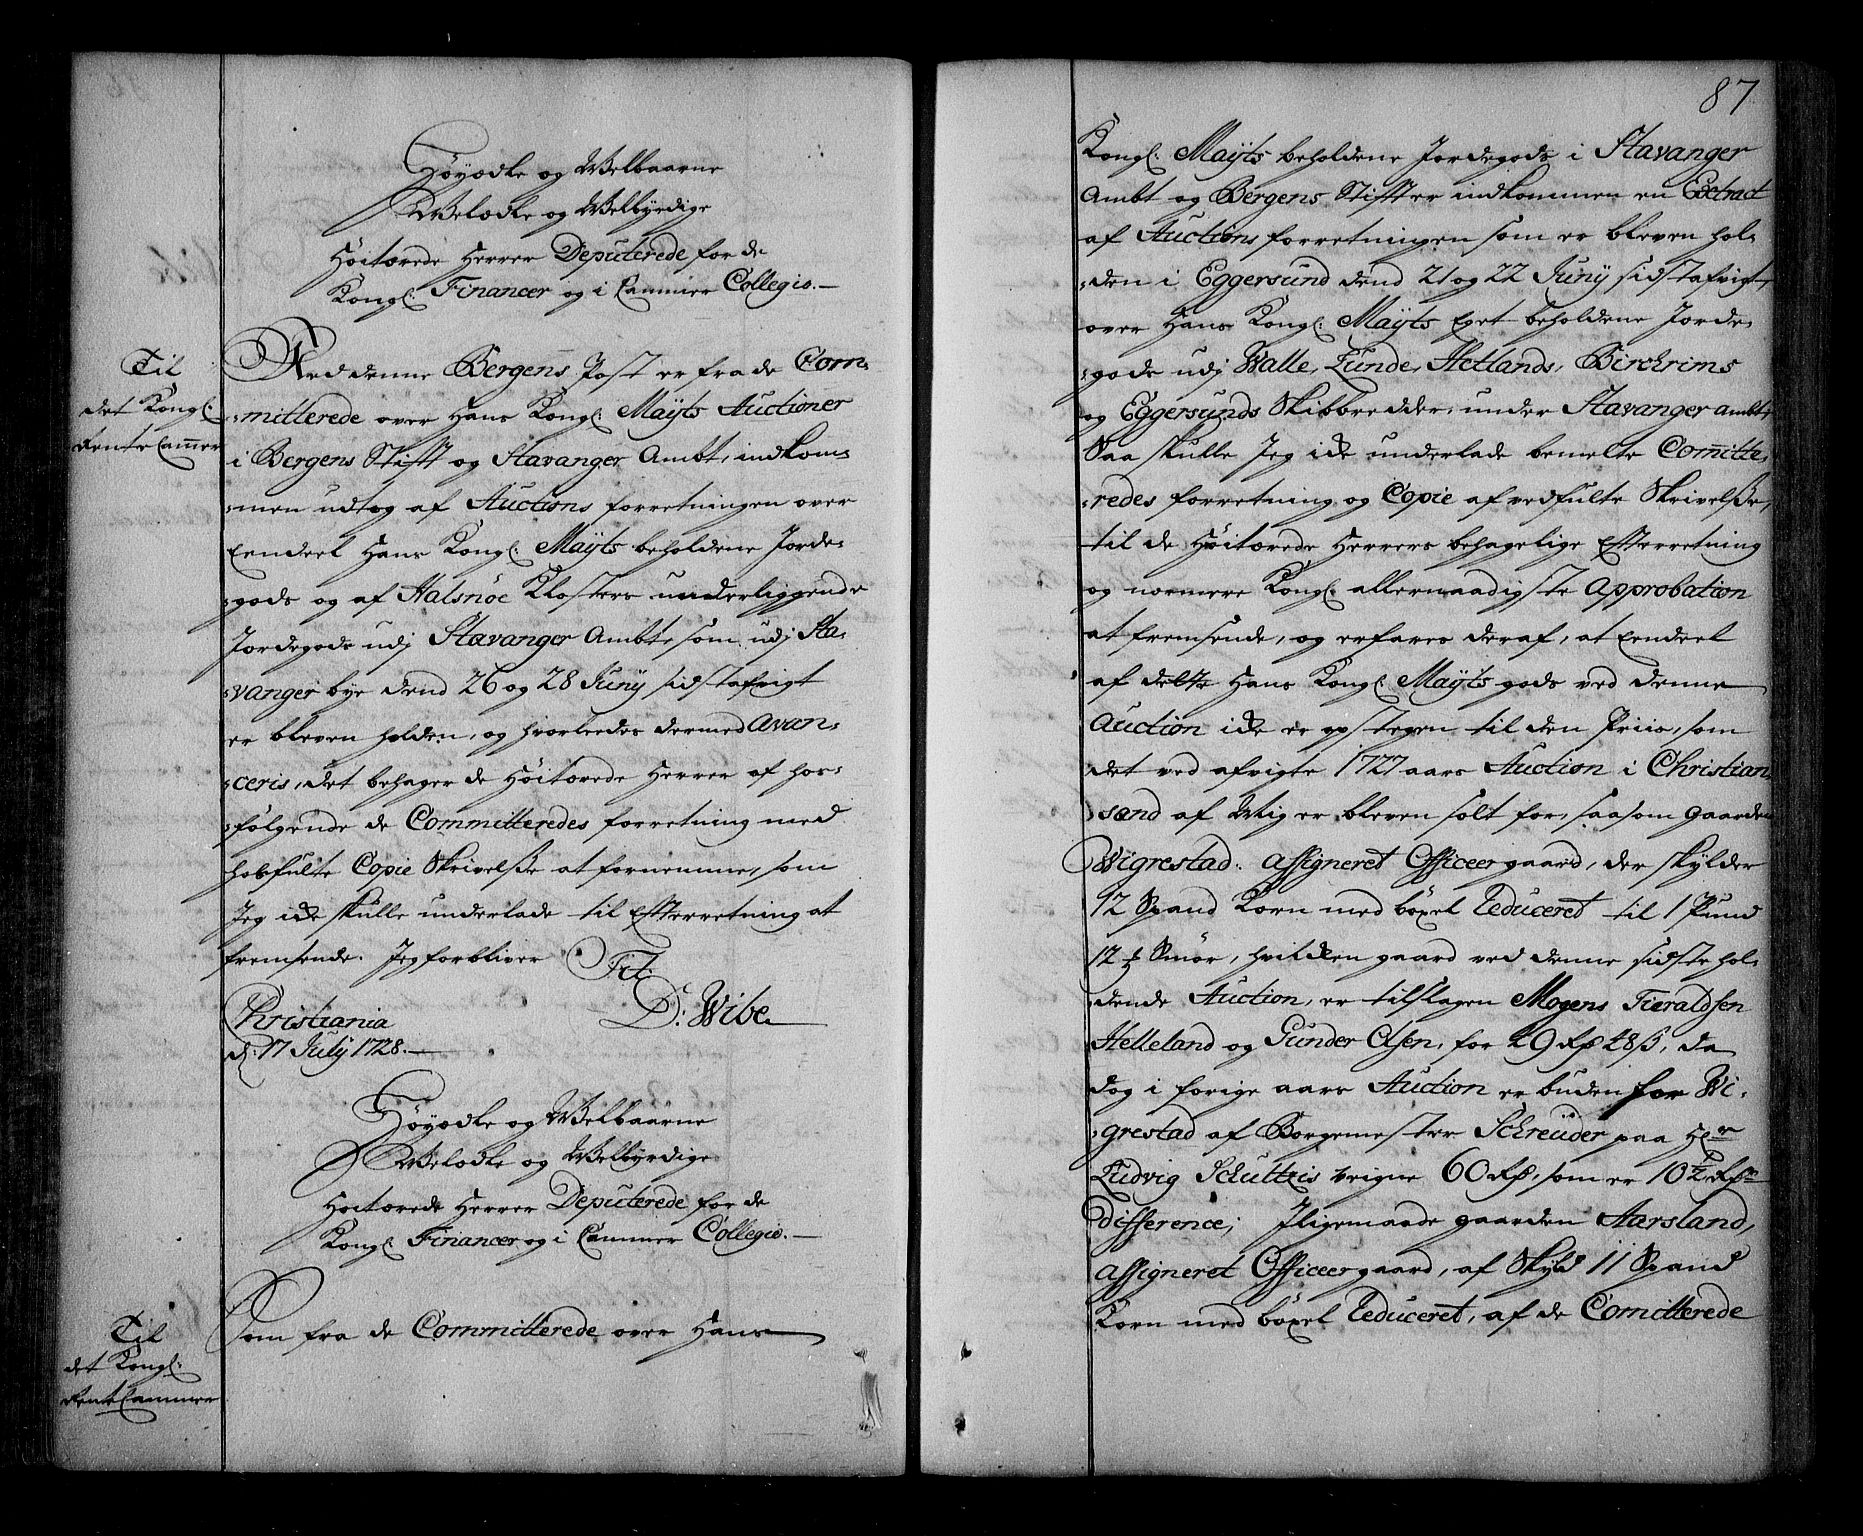 Høyædle og Welbaarne
Welædle og Welbyrdige
Høitærede Herrer Deputerede for de
Kongl: Financer og i Cammer Collegio.—
Til
det Kongl:
Rente Cammer
Med denne Bergens Post er fra de Com-
mitterede over Hans Kongl: Mayts Auctioner
i Bergens Stift og Stavanger Ambt, indkom-
men udtog af Auctions forretningen over
Eendeel Hans Kongl: Mayts beholdene Jorde-
gods og af Halsnöe Klosters underliggende
Jordegods udj Stavanger Ambt, som udj Sta-
vanger bye dend 26 og 28 Juny sidstafvigt
er bleven holden, og hvorleedes dermed avan-
ceris, det behager de Høitærede Herrer af hos-
følgende de Committeredes forretning med
hosfulte Copie Skrivelse at fornemme, som
Jeg icke skulle underlade til Efterretning at
fremsende. Jeg forbliver Tit:
D: Wibe
Christiania
d: 17 July 1728.—
Høyædle og Welbaarne
Welædle og Welbyrdige
Høitærede Herrer Deputerede for de
Kongl: Financer og i Cammer Collegio.—
Til
det Kongl:
Rente Cammer
Som fra de Committerede over Hans
87
Kongl: Mayts beholdene Jordegods i Stavanger
Ambt og Bergens Stift er indkommen en Extract
af Auctions forretningen som er bleven hol-
den i Eggersund dend 21 og 22 Juny sidstafvigt,
over Hans Kongl: Mayts Eget beholdene Jorde-
gods udj Walle, Lunde, Hetlands, Birchrims
og Eggersunds Skibbredder, under Stavanger ambt,
Saa skulle Jeg icke underlade bemelte Comitte-
redes forretning og Copie af vedfulte Skrivelse,
til de Høitærede Herrers behagelige Efterretning
og nærmere Kongl: allernaadigste Approbation
at fremsende, og erfares deraf, at Eendeel
af dette Hans Kongl: Mayts gods ved denne
Auction icke er opstegen til den Priis, som
det ved afvigte 1727 aars Auction i Christian-
sand af Mig er bleven solt for, saasom gaarden
Wigrestad: assigneret Officeer gaard, der skylder
12 Spand Korn med böxel Reduceret til 1 Pund
12 ½ Smör, hvilken gaard ved denne sidste hol-
dende Auction, er tilslagen Mogens Tieraldsen
Helleland og Gunder Olsen, for 49 Rd 48 ß, da
dog i forige aars Auction er buden for Wi-
grestad af Borgemester Schreüder paa Hr
Ludvig Schutttis veigne 60 Rd, som er 10½ Rdr
difference; Jligemaade gaarden Aarsland,
assigneret Officeer gaard, af Skyld 11 Spand
Korn med böxel Reduceret, af de Comitterede